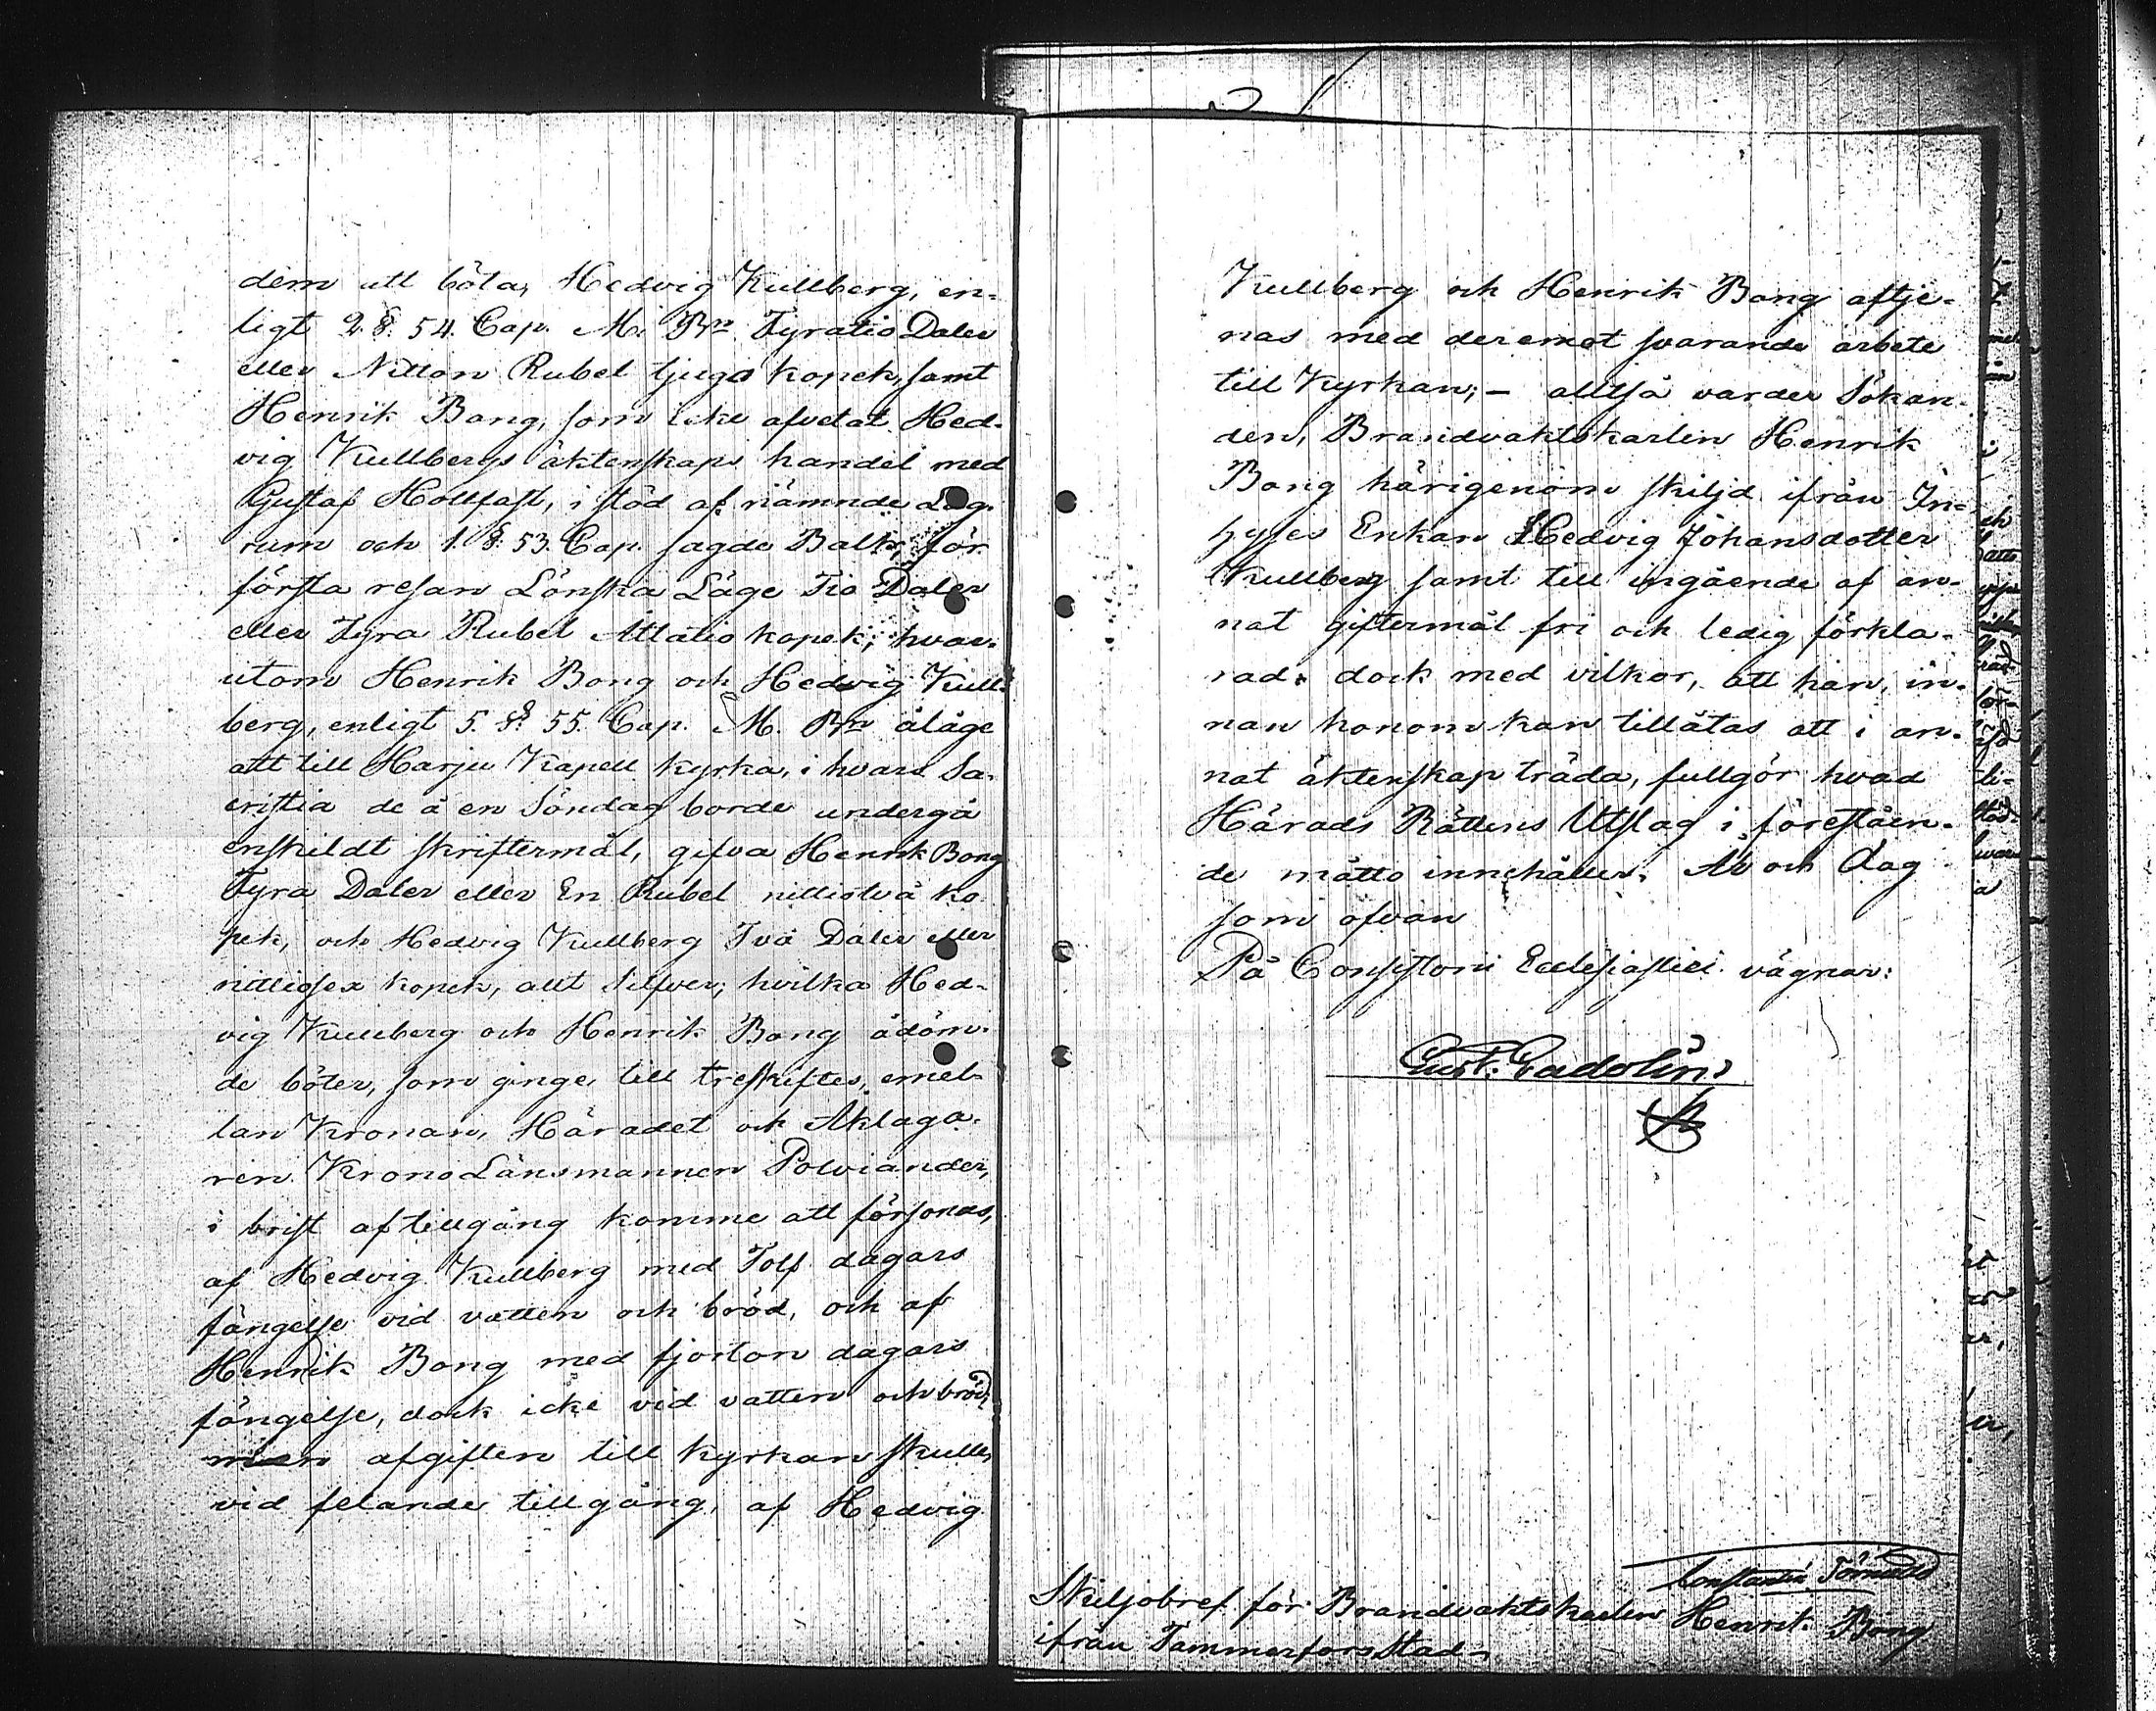 dem att böta, Hedvig Kullberg, en-
ligt 2 §. 54. Cap. M. Bn Fyratio Daler
eller Nitton Rubel tjugo kopek, samt
Henrik Bong, som icke afvetat Hed-
vig Kullbergs äktenskaps handel med
Gustaf Hollfast, i stöd af nämnde Lag-
rum och 1. §. 53. Cap. sagde Balk, för
första resan Lönska Läge Tio Daler
eller Fyra Rubel Åttatio kopek; hvar-
utom Henrik Bong och Hedvig Kull-
berg, enligt 5. §. 55. Cap. M. Bn ålåge
att till Harju Kapell kyrka, i hvars Sa-
cristia de å en Söndag borde undergå
enskildt skriftermål, gifva Henrik Bong
Fyra Daler eller En Rubel nittiotvå ko-
pek, och Hedvig Kullberg Två Daler eller
nittiosex kopek, allt Silfver; hvilka Hed-
vig Kullberg och Henrik Bong ådöm-
de böter, som ginge till treskiftes, emel-
lan Kronan, Häradet och Åklaga-
ren KronoLänsmannen Polviander,
i brist af tillgång komme att försonas,
af Hedvig Kullberg med Tolf dagars
fängelse vid vatten och bröd, och af
Henrik Bong med fjorton dagars
fängelse, dock icke vid vatten och bröd;
men afgiften till kyrkan skulle,
vid felande tillgång, af Hedvig
Kullberg och Henrik Bong aftje-
nas med deremot svarande arbete
till Kyrkan; – alltså varder Sökan-
den, Brandvaktskarlen Henrik
Bong härigenom skiljd ifrån In-
hyses Enkan Hedvig Johansdotter
Kullberg samt till ingående af an-
nat giftermål fri och ledig förkla-
rad; dock med vilkor, att han, in-
nan honom kan tillåtas att i an-
nat äktenskap träda, fullgör hvad
Härads Rättens Utslag i föreståen-
de måtto innehåller. År och Dag
som ofvan
På Consistorii Ecclesiastici vägnar:
Gust. Gadolin
Constantin
Skiljobref för Brandvaktskarlen Henrik Bong
ifrån Tammerfors Stad